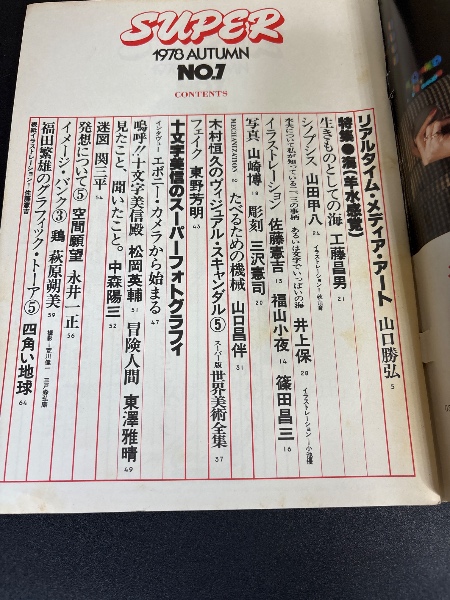 SUPER
1978 AUTUMN
NO.7
CONTENTS
リアルタイム・メディア・アート 山口勝弘 5
特集●海(羊水感覚)
生きものとしての海 工藤昌男 21
シノプシス 山田甲八 24
海について私が知っている二、三の事柄 あるいは文字でいっぱいの海 井上保 28
イラストレーション 佐藤憲吉 13 福山小夜 14 篠田昌三 16
写真 山崎博 18 彫刻 三沢憲司 20
MECHANIZATION 12 たべるための機械 山口昌伴 31
木村恒久のヴィジュアル・スキャンダル⑤ スーパー版 世界美術全集 37
フェイク 東野芳明 43
十文字美信のスーパーフォトグラフィ
インタヴュー エボニー・カメラから始まる 47
嗚呼、十文字美信殿 松岡英輔 51 冒険人間 東澤雅晴 49
見たこと、聞いたこと。 中森陽三 52
迷図 関三平 54
発想について⑤ 空間願望 永井一正 56
イメージ・バンク③ 鶏 萩原朔美 59
福田繁雄のグラフィック・トーア⑤ 四角い地球 64
表紙イラストレーション=佐藤憲吉